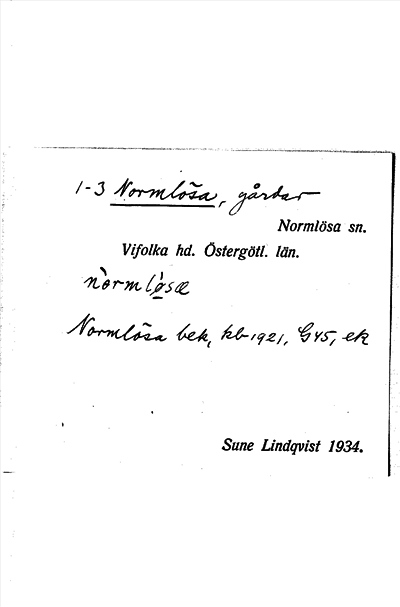 1-3 Normlösa, gårdar
Normlösa sn.
Vifolka hd. Östergötl. län.
Normlösa bek, kb 1921, G45, ek
Sune Lindqvist 1934.